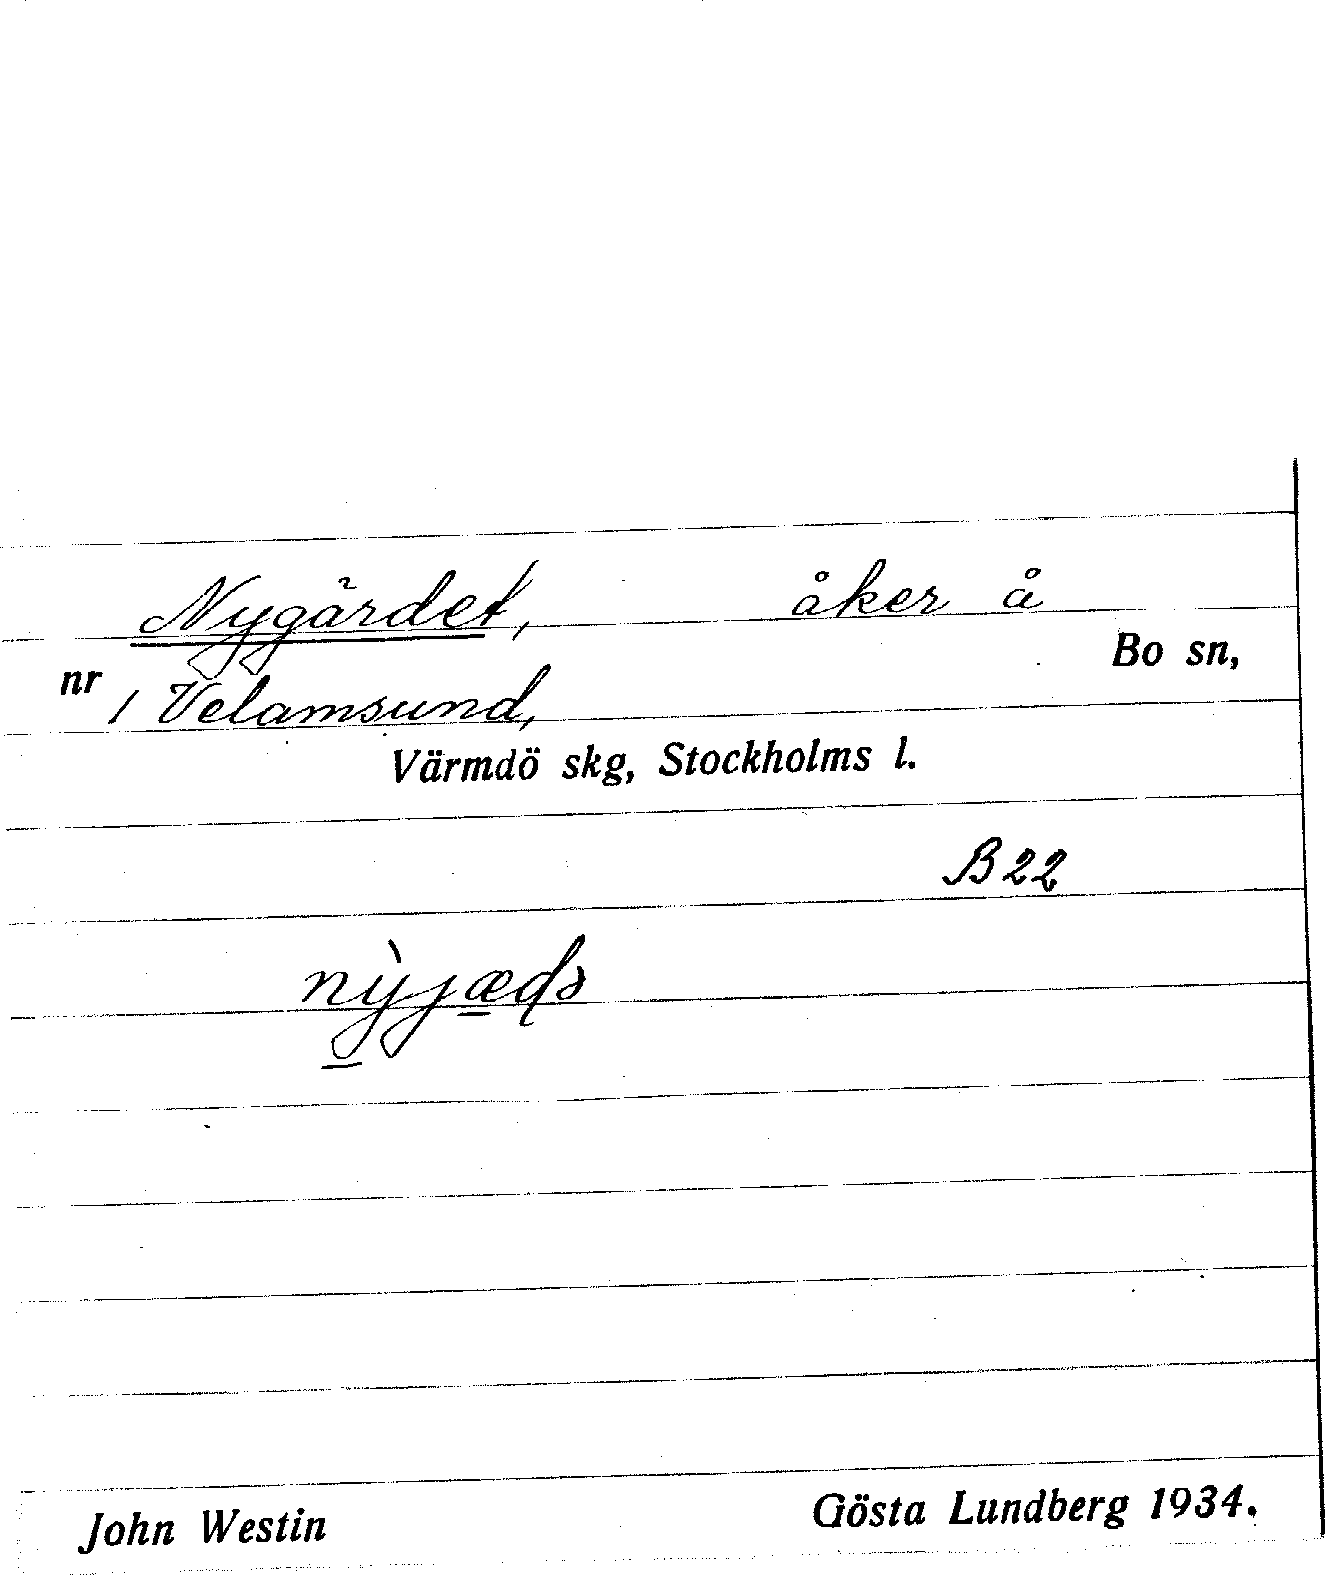 Nygärdet, åker å
Bo sn,
nr 1 Velamsund,
Värmdö skg, Stockholms l.
B22
nỳjæḍə
John Westin Gösta Lundberg 1934.